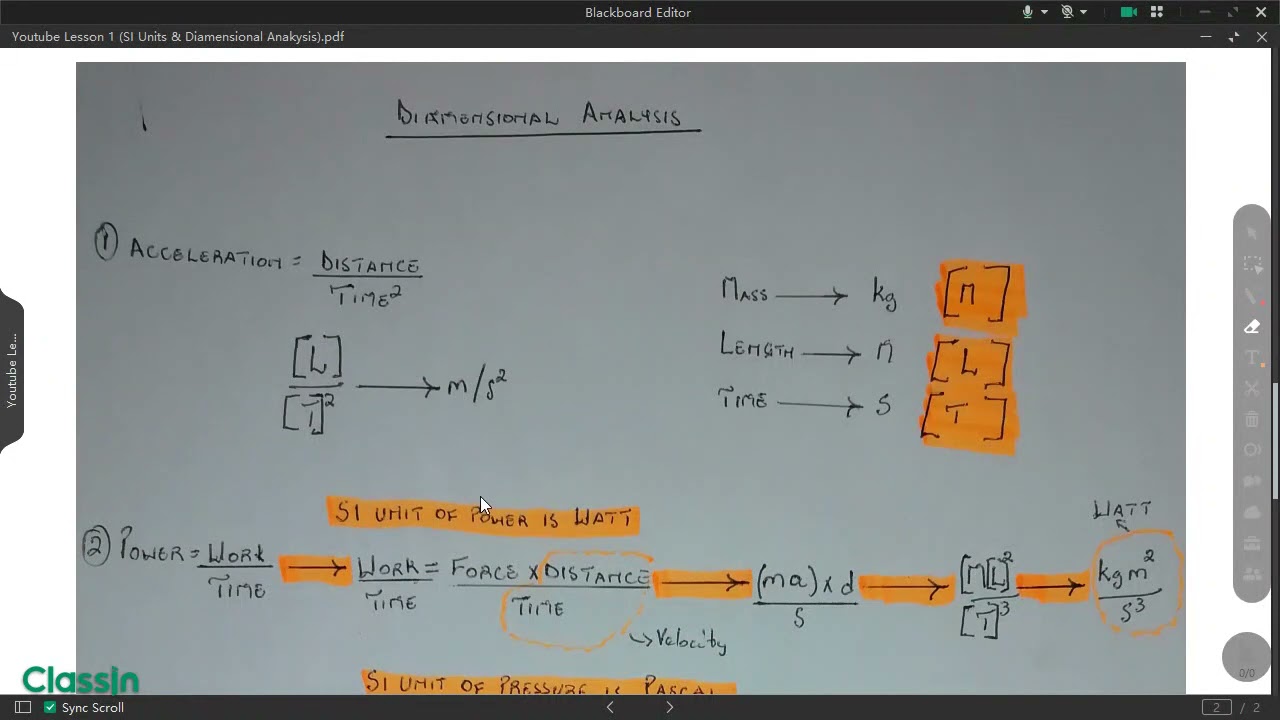 Blackboard Editor
Youtube Lesson 1 (SI Units & Diamensional Anakysis).pdf
DIAMENSIONAL ANALYSIS
① ACCELERATION = DISTANCE / TIME²
[L] / [T]² → m/s²
MASS → kg [M]
LENGTH → M [L]
TIME → S [T]
SI UNIT OF POWER IS WATT
WATT
② POWER = WORK / TIME → WORK / TIME = FORCE × DISTANCE / TIME → (ma) × d / S → [M][L]² / [T]³ → kg m² / S³
→ Velocity
SI UNIT OF PRESSURE IS PASCAL
Youtube Le...
0/0
ClassIn
Sync Scroll
2 / 2